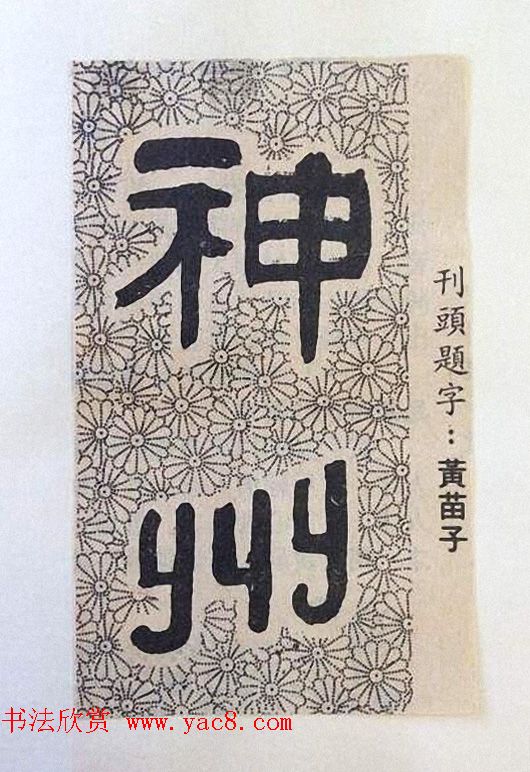 神州
刊頭題字：黃苗子
书法欣赏 www.yac8.com